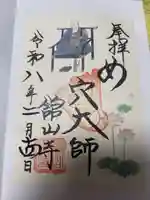 奉拝
め
穴大師
舘山寺
令和八年二月四日